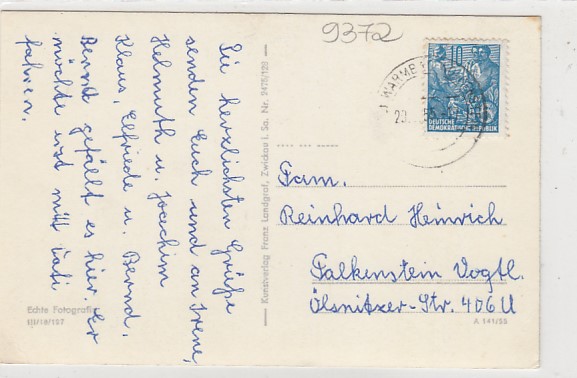 9372
Die herzlichsten Grüße
senden Euch und an Irene,
Helmuth u. Joachim
Klaus, Elfriede u. Bernd.
Bernd gefällt es hier. Er
möchte erst mitt
fahren.
Echte Fotografie
III/18/127
Kunstverlag Franz Landgraf, Zwickau i. Sa. Nr. 9476/129
10
DEUTSCHE
DEMOKRATISCHE REPUBLIK
WARMB
20.
55
Fam.
Reinhard Heinrich
Falkenstein Vogtl.
Ölsnitzer-Str. 406 U
A 141/55